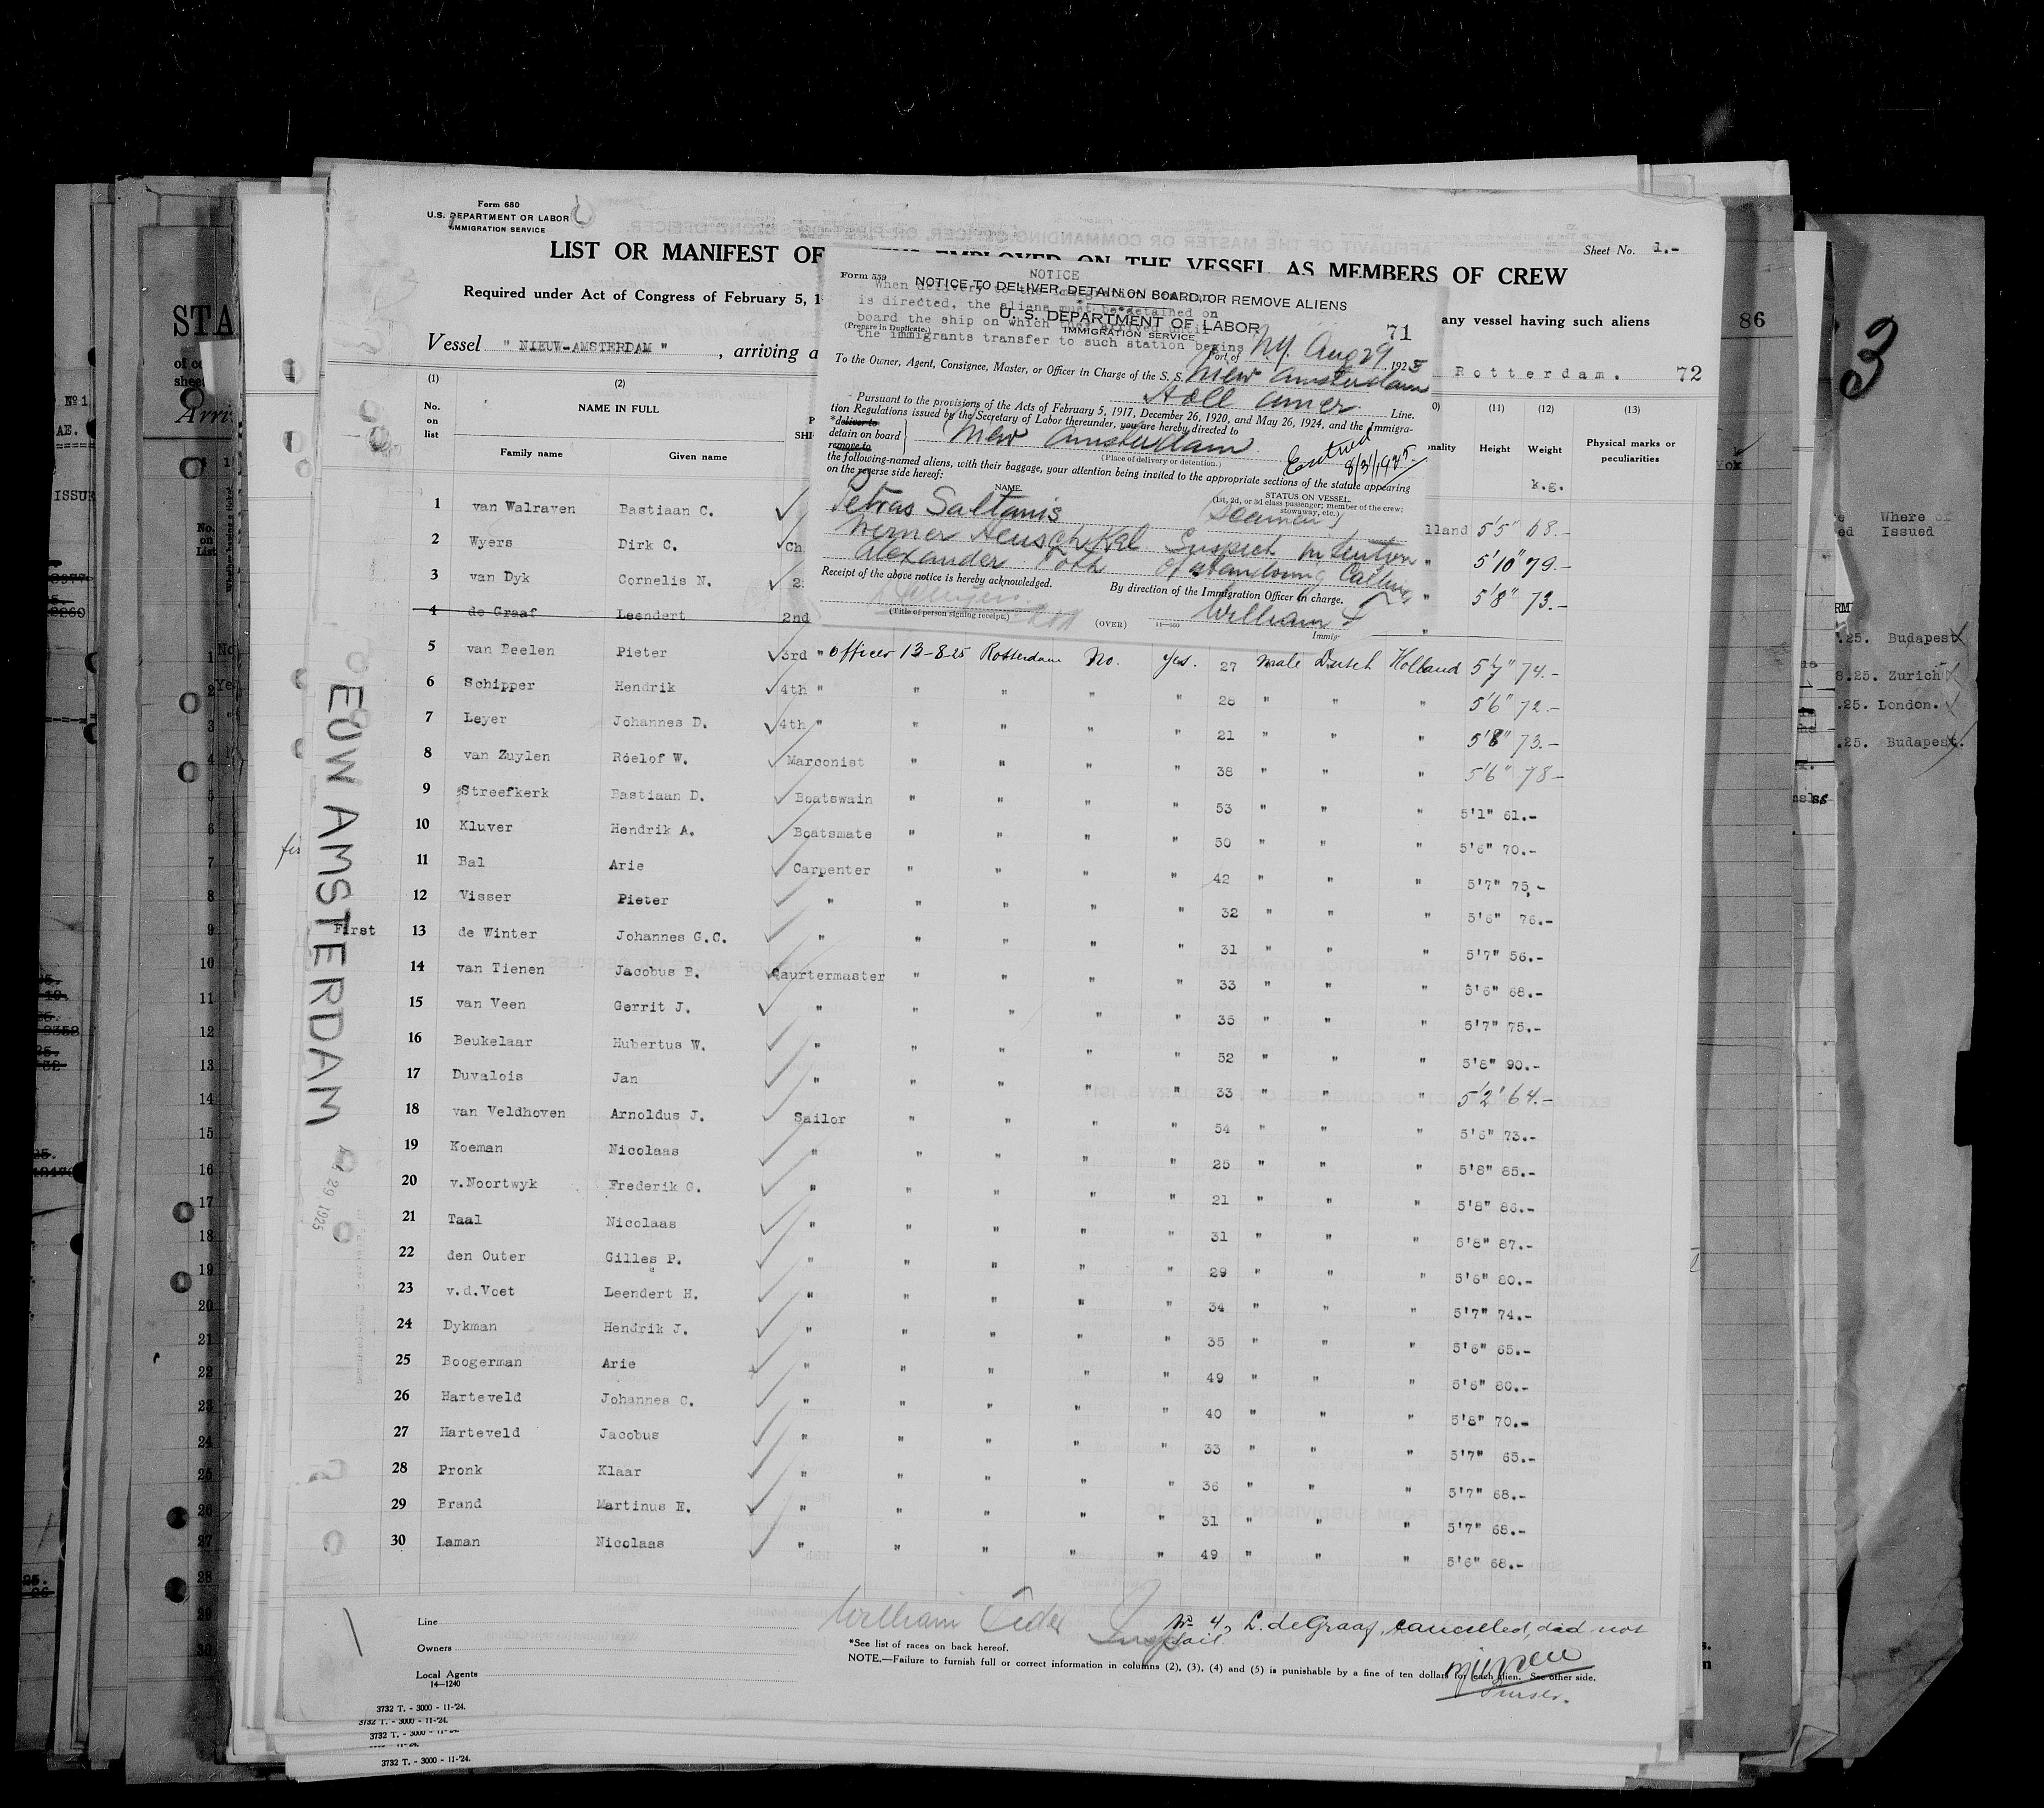 Form 680
U.S. DEPARTMENT OR LABOR
IMMIGRATION SERVICE
Sheet No. 1.-
LIST OR MANIFEST OF EMPLOYED ON THE VESSEL AS MEMBERS OF CREW
Required under Act of Congress of February 5, 1
any vessel having such aliens
Vessel " NIEUW-AMSTERDAM " , arriving a
Rotterdam. 72
Form 559
NOTICE
NOTICE TO DELIVER, DETAIN ON BOARD, OR REMOVE ALIENS
When delivery to the
is directed, the aliens must be detained on
board the ship on which
the immigrants transfer to such station begins
U. S. DEPARTMENT OF LABOR
IMMIGRATION SERVICE
71
(Prepare in Duplicate.)
Port of N.Y. Aug 29 1925
To the Owner, Agent, Consignee, Master, or Officer in Charge of the S. S. New Amsterdam
Holl Amer. Line.
Pursuant to the provisions of the Acts of February 5, 1917, December 26, 1920, and May 26, 1924, and the Immigra-
tion Regulations issued by the Secretary of Labor thereunder, you are hereby directed to
*deliver to
detain on board
remove to
New Amsterdam
(Place of delivery or detention.)
Entried 8/31/1925
the following-named aliens, with their baggage, your attention being invited to the appropriate sections of the statute appearing
on the reverse side hereof:
NAME.
STATUS ON VESSEL.
(1st, 2d, or 3d class passenger; member of the crew;
stowaway, etc.)
Petras Saltanis (Seamen)
Werner Henschkal Suspect intention
Alexander Toth of abandoning Calling
Receipt of the above notice is hereby acknowledged.
By direction of the Immigration Officer in charge.
William
(Title of person signing receipt.)
(OVER)
Immig
(1) (2) (11) (12) (13)
No. on list
NAME IN FULL
Family name Given name
Height Weight Physical marks or peculiarities
k.g.
1 van Walraven Bastiaan C. lland 5'5" 68.-
2 Wyers Dirk C. Ch " 5'10" 79.-
3 van Dyk Cornelis N. " 5'8" 73.-
4 de Graaf Leendert 2nd "
5 van Beelen Pieter 3rd " Officer 13-8-25 Rotterdam No. yes. 27 male Dutch Holland 5'7" 74.-
6 Schipper Hendrik 4th " " " " " 28 " " " 5'6" 72.-
7 Leyer Johannes D. 4th " " " " " 21 " " " 5'8" 73.-
8 van Zuylen Roelof W. Marconist " " " " 38 " " " 5'6" 78-
9 Streefkerk Bastiaan D. Boatswain " " " " 53 " " " 5'1" 61.-
10 Kluver Hendrik A. Boatsmate " " " " 50 " " " 5'6" 70.-
11 Bal Arie Carpenter " " " " 42 " " " 5'7" 75,-
12 Visser Pieter " " " " " 32 " " " 5'6" 76.-
13 de Winter Johannes G.C. " " " " " 31 " " " 5'7" 56.-
14 van Tienen Jacobus B. Qaurtermaster " " " " 33 " " " 5'6" 68.-
15 van Veen Gerrit J. " " " " " 35 " " " 5'7" 75.-
16 Beukelaar Hubertus W. " " " " " 52 " " " 5'8" 90.-
17 Duvalois Jan " " " " " 33 " " " 5'2' 64.-
18 van Veldhoven Arnoldus J. Sailor " " " " 54 " " " 5'6" 73.-
19 Koeman Nicolaas " " " " " 25 " " " 5'8" 85.-
20 v.Noortwyk Frederik G. " " " " " 21 " " " 5'8" 86.-
21 Taal Nicolaas " " " " " 31 " " " 5'8" 87.-
22 den Outer Gilles P. " " " " " 29 " " " 5'6" 80.-
23 v.d.Voet Leendert H. " " " " " 34 " " " 5'7" 74.-
24 Dykman Hendrik J. " " " " " 35 " " " 5'6" 65.-
25 Boogerman Arie " " " " " 49 " " " 5'6" 80.-
26 Harteveld Johannes C. " " " " " 40 " " " 5'8" 70.-
27 Harteveld Jacobus " " " " " 33 " " " 5'7" 65.-
28 Pronk Klaar " " " " " 36 " " " 5'7" 68.-
29 Brand Martinus E. " " " " " 31 " " " 5'7" 68.-
30 Laman Nicolaas " " " " " 49 " " " 5'6" 68.-
First
EUW AMSTERDAM
29 1925
Line
Owners
Local Agents
14—1240
No 4, L. de Graaf, cancelled, did not
sail.
*See list of races on back hereof.
NOTE.—Failure to furnish full or correct information in columns (2), (3), (4) and (5) is punishable by a fine of ten dollars for each alien. See other side.
Purser.
3732 T. - 3000 - 11-'24.
3732 T. - 3000 - 11-'24.
3732 T. - 3000 - 11-'24.
3732 T. - 3000 - 11-'24.
STA
86
3
Where of
Issued
.25. Budapest
8.25. Zurich
.25. London.
.25. Budapest.